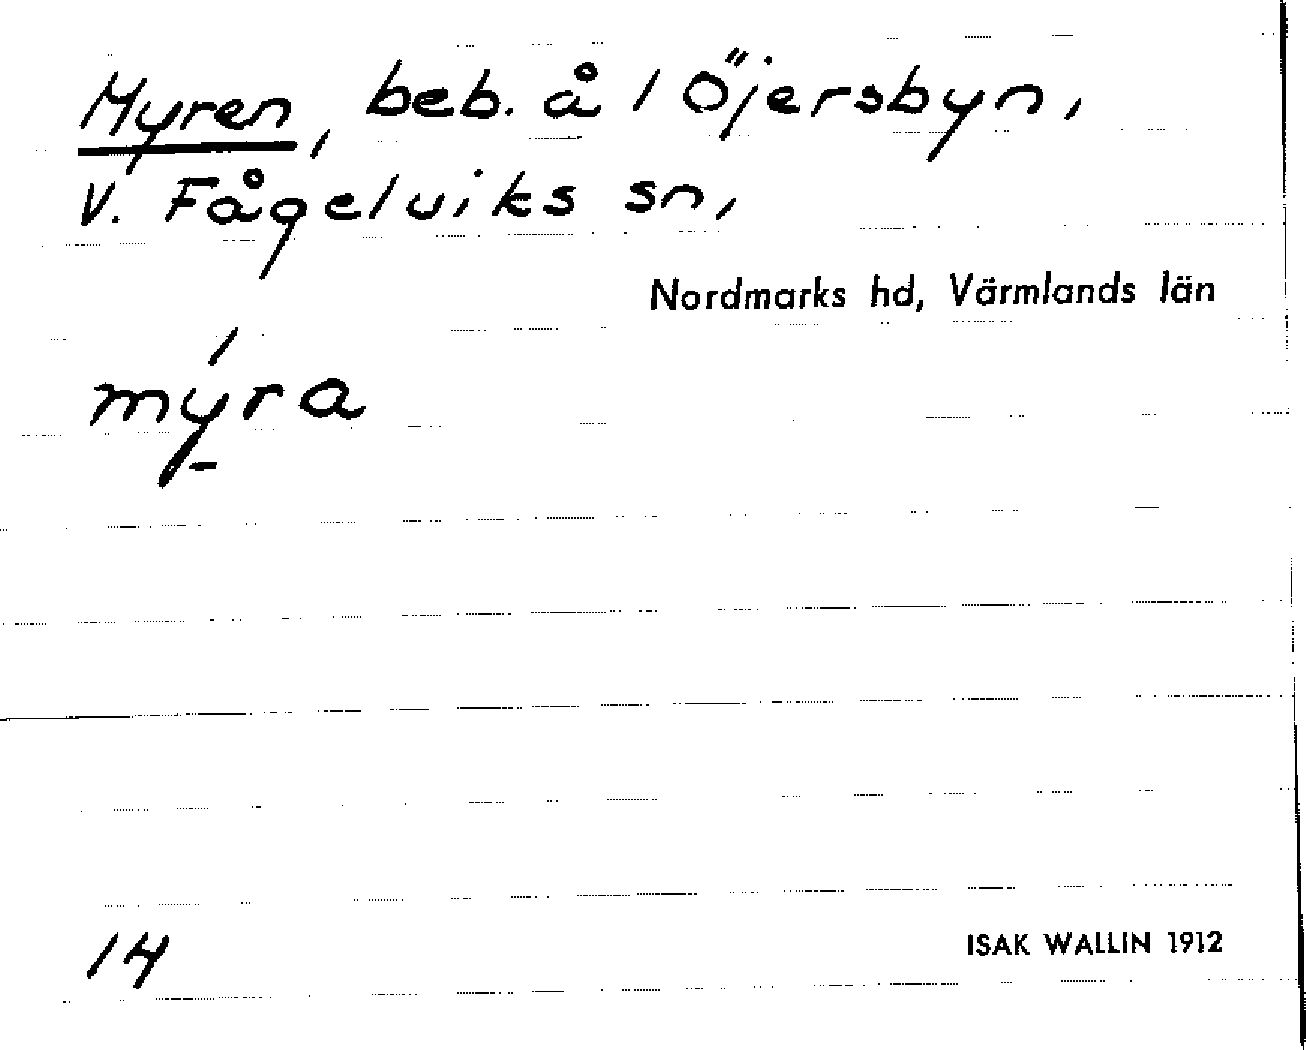 Myren, beb. å 1 Öjersbyn,
V. Fågelviks sn,
Nordmarks hd, Värmlands län
mýra
14
ISAK WALLIN 1912